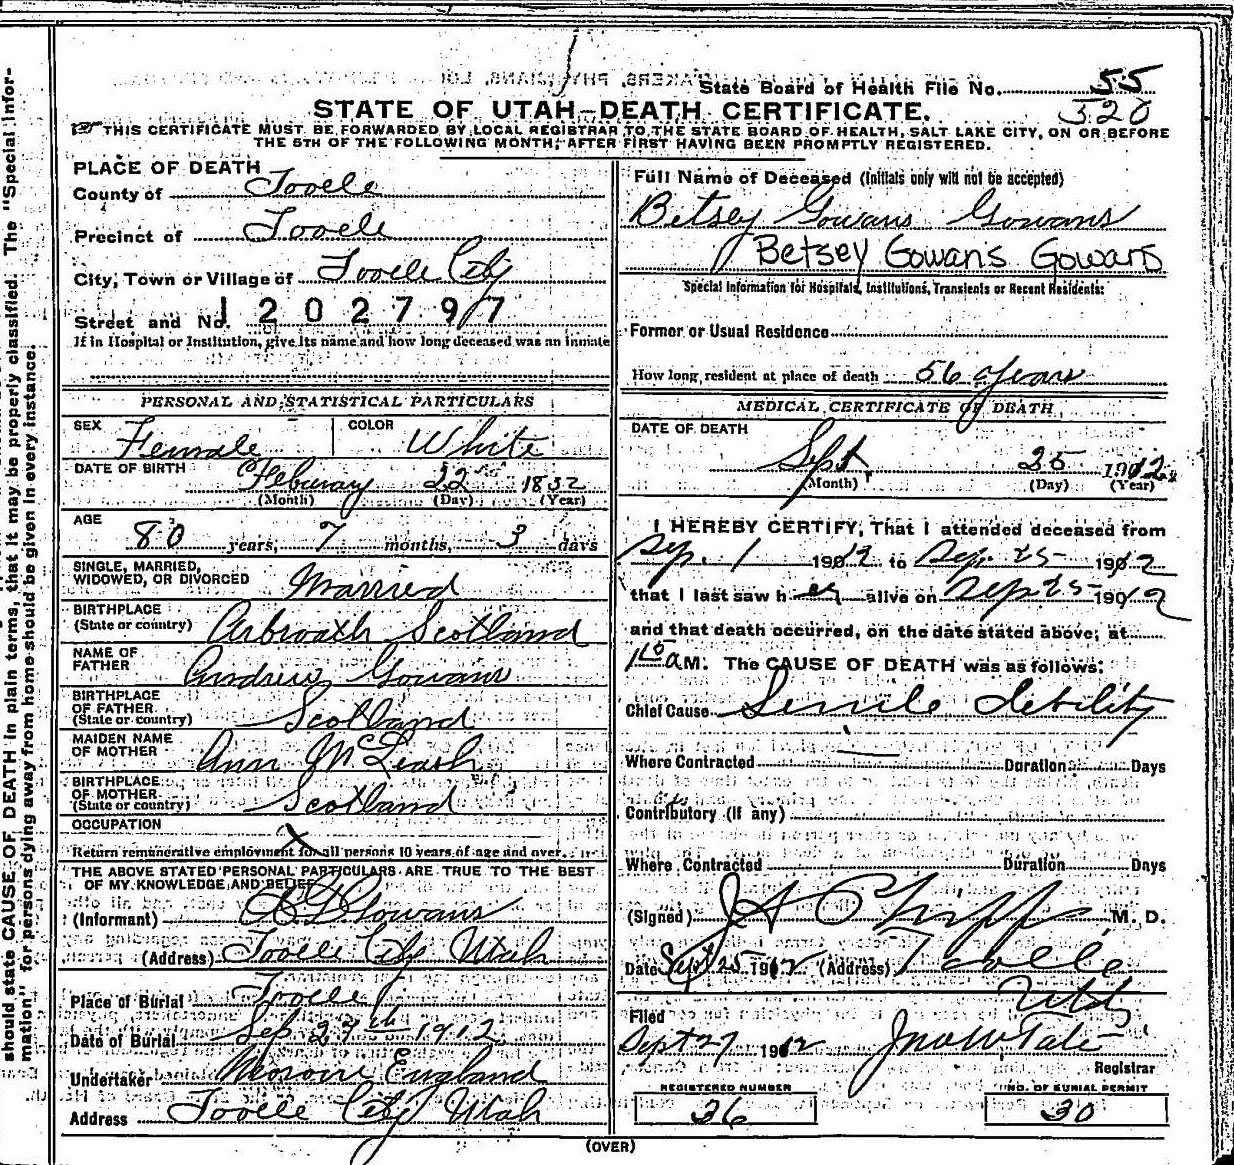 should state CAUSE OF DEATH in plain terms, that it may be properly classified. The "Special Infor-
mation" for persons dying away from home should be given in every instance.
State Board of Health File No. 55
320
STATE OF UTAH—DEATH CERTIFICATE.
THIS CERTIFICATE MUST BE FORWARDED BY LOCAL REGISTRAR TO THE STATE BOARD OF HEALTH, SALT LAKE CITY, ON OR BEFORE
THE 5TH OF THE FOLLOWING MONTH, AFTER FIRST HAVING BEEN PROMPTLY REGISTERED.
PLACE OF DEATH
County of Tooele
Precinct of Tooele
City, Town or Village of Tooele City
Street and No. 1202797
If in Hospital or Institution, give its name and how long deceased was an inmate
PERSONAL AND STATISTICAL PARTICULARS
SEX Female COLOR White
DATE OF BIRTH Feburary 22 1832
(Month) (Day) (Year)
AGE
80 years, 7 months, 3 days
SINGLE, MARRIED,
WIDOWED, OR DIVORCED Married
BIRTHPLACE
(State or country) Arbroath Scotland
NAME OF
FATHER Andrew Gowans
BIRTHPLACE
OF FATHER
(State or country) Scotland
MAIDEN NAME
OF MOTHER Ann McLeash
BIRTHPLACE
OF MOTHER
(State or country) Scotland
OCCUPATION X
Return remunerative employment for all persons 10 years of age and over.
THE ABOVE STATED PERSONAL PARTICULARS ARE TRUE TO THE BEST
OF MY KNOWLEDGE AND BELIEF
(Informant) Gowans
(Address) Tooele City Utah
Place of Burial Tooele
Date of Burial Sep. 27th 1912
Undertaker England
Address Tooele City Utah
Full Name of Deceased (Initials only will not be accepted)
Betsey Gowans Gowans
Betsey Gowans Gowans
Special Information for Hospitals, Institutions, Transients or Recent Residents:
Former or Usual Residence
How long resident at place of death 56 years
MEDICAL CERTIFICATE OF DEATH
DATE OF DEATH
Sept. 25 1912
(Month) (Day) (Year)
I HEREBY CERTIFY, That I attended deceased from
Sep. 1 1912 to Sep. 25 1912
that I last saw her alive on Sep 25 1912
and that death occurred, on the date stated above, at
1 A M. The CAUSE OF DEATH was as follows:
Chief Cause Senile debility
Where Contracted Duration Days
Contributory (if any)
Where Contracted Duration Days
(Signed) M. D.
Date Sept 25 1912 (Address) Tooele
Utah
Filed
Sept 27 1912 Jno W Tate
Registrar
REGISTERED NUMBER NO. OF BURIAL PERMIT
36 30
(OVER)